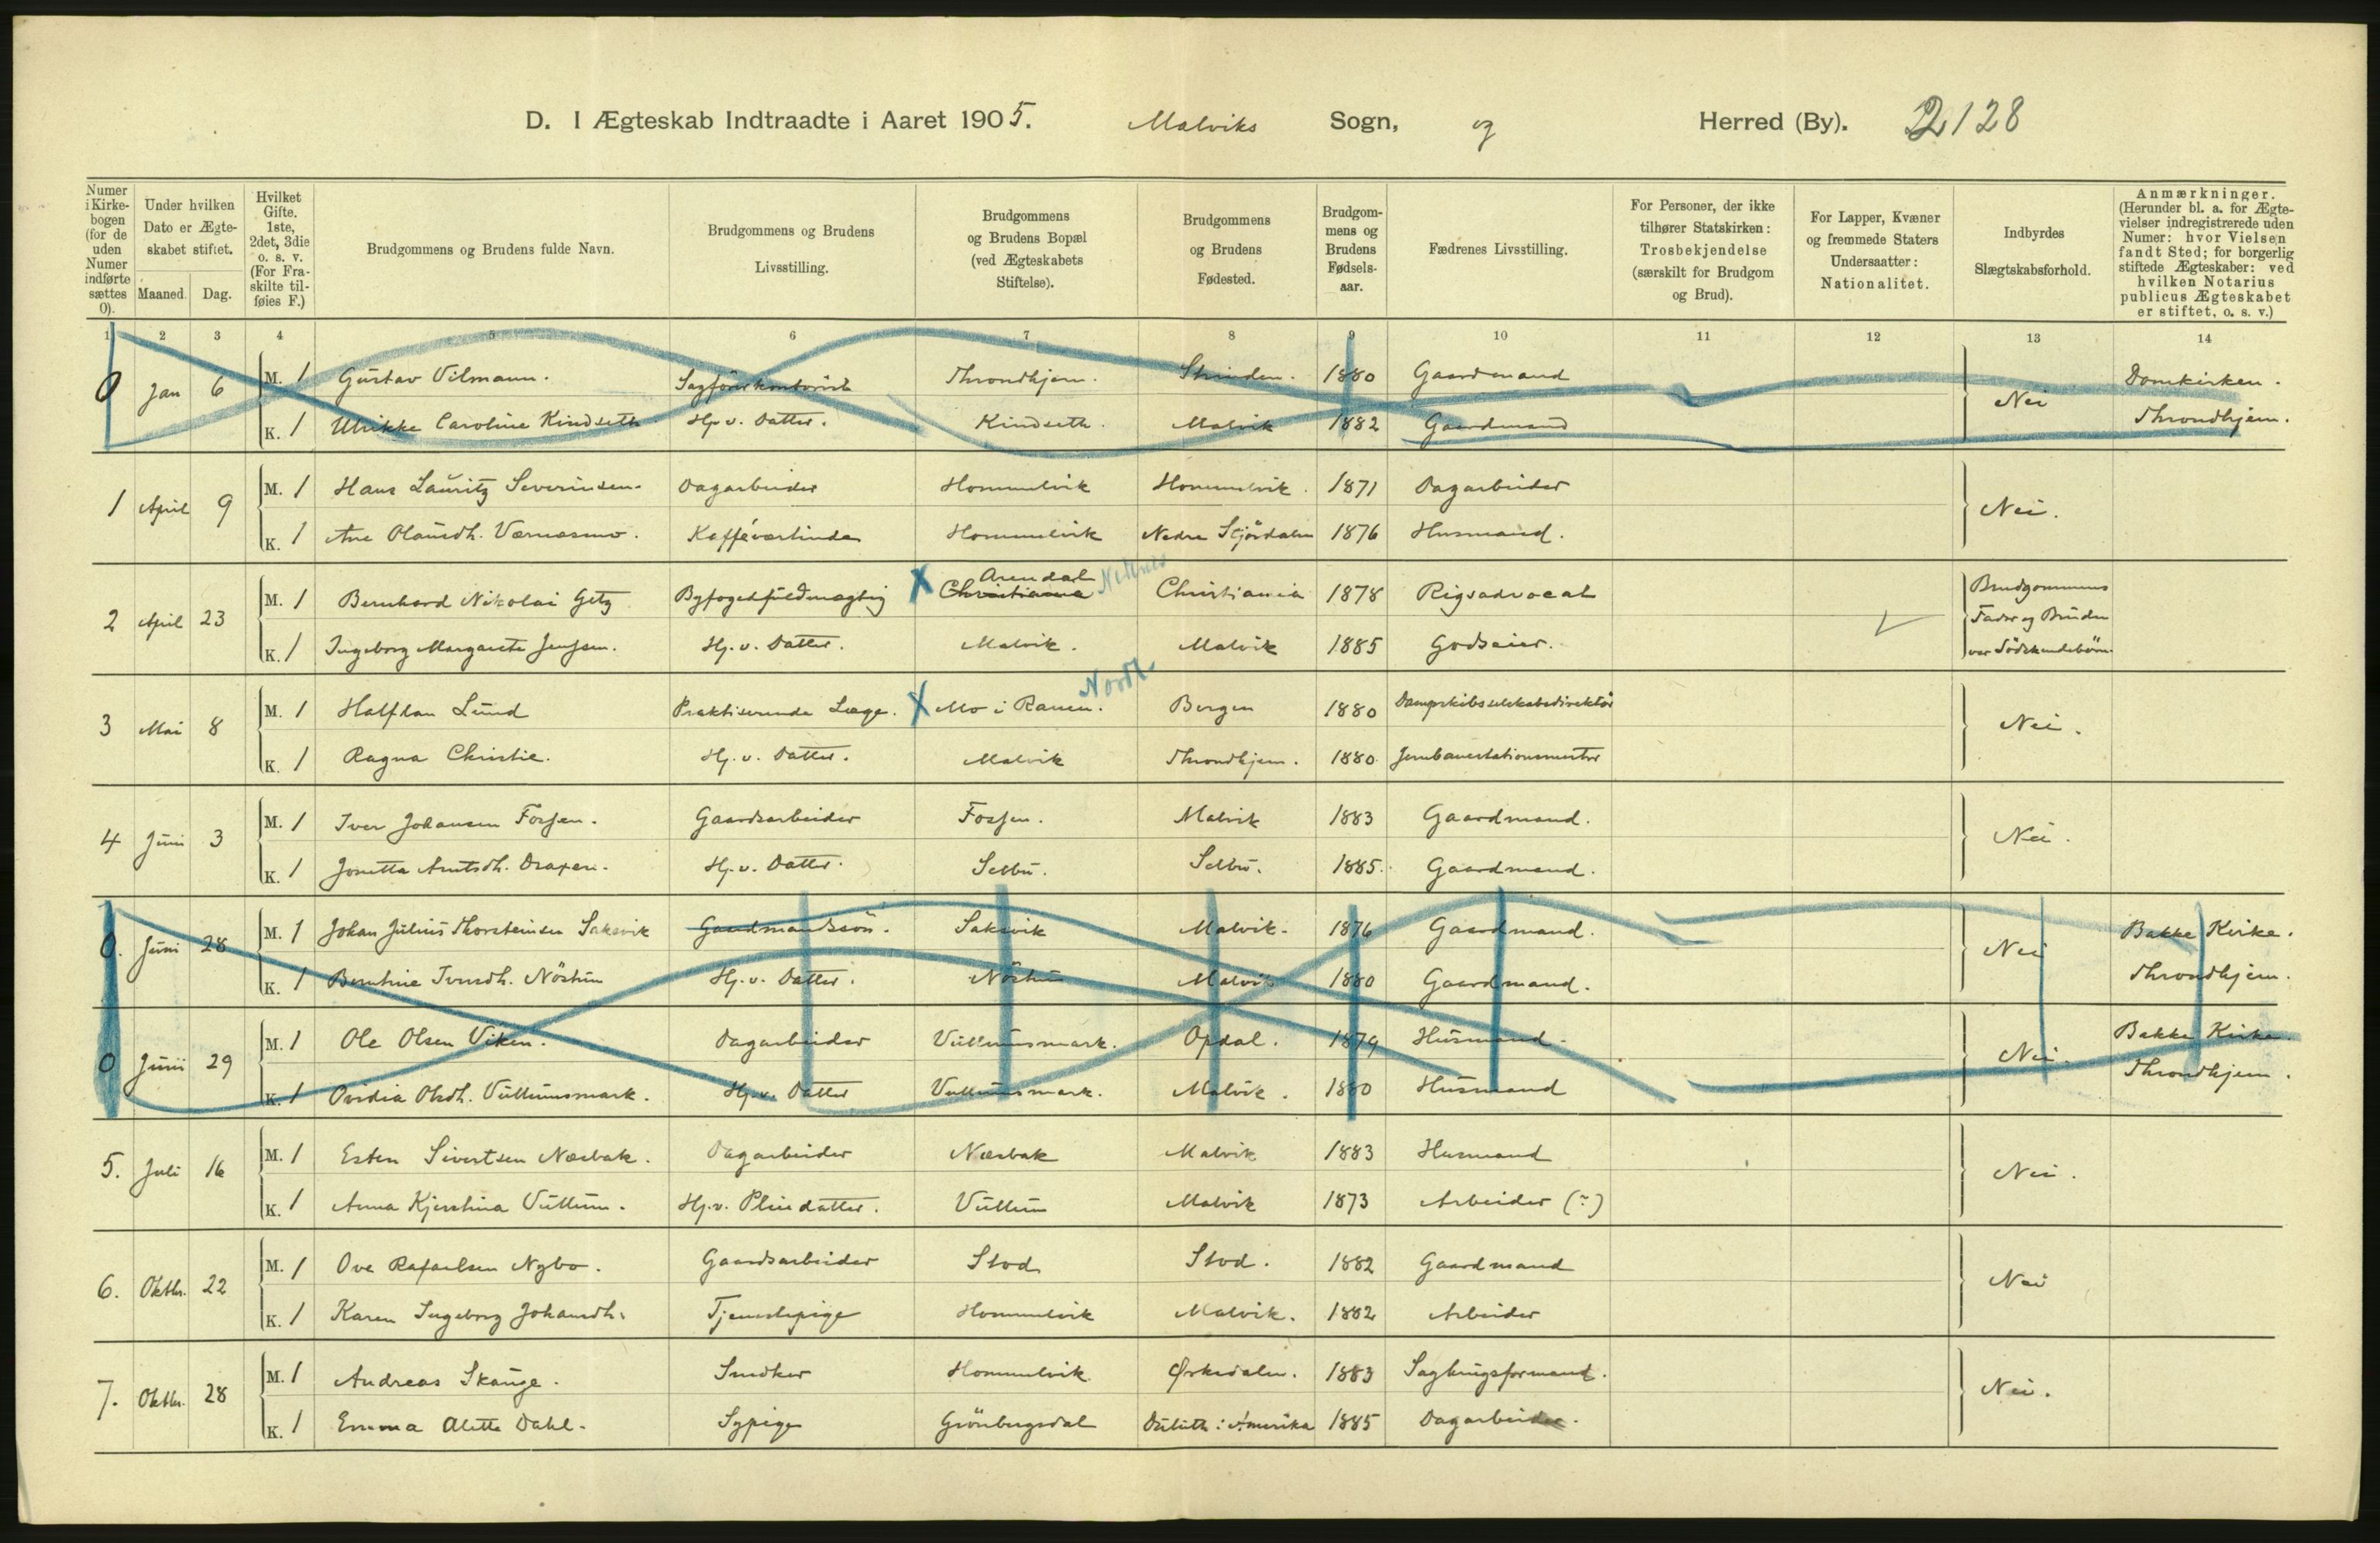 D. I Ægteskab Indtraadte i Aaret 1905. Malviks Sogn, og Herred (By). 2128
Numer i Kirke-bogen (for de uden Numer indførte sættes 0).
Under hvilken Dato er Ægte-skabet stiftet.
Maaned. Dag.
Hvilket Gifte. 1ste, 2det, 3die o. s. v. (For Fra-skilte til-føies F.)
Brudgommens og Brudens fulde Navn.
Brudgommens og Brudens Livsstilling.
Brudgommens og Brudens Bopæl (ved Ægteskabets Stiftelse).
Brudgommens og Brudens Fødested.
Brudgom-mens og Brudens Fødsels-aar.
Fædrenes Livsstilling.
For Personer, der ikke tilhører Statskirken: Trosbekjendelse (særskilt for Brudgom og Brud).
For Lapper, Kvæner og fremmede Staters Undersaatter: Nationalitet.
Indbyrdes Slægtskabsforhold.
Anmærkninger. (Herunder bl. a. for Ægte-vielser indregistrerede uden Numer: hvor Vielsen fandt Sted; for borgerlig stiftede Ægteskaber: ved hvilken Notarius publicus Ægteskabet er stiftet, o. s. v.)
1 2 3 4 5 6 7 8 9 10 11 12 13 14
0 Jan 6 M. 1 Gustav Vilmann. Sagførerkontorist Throndhjem. Strinden. 1880 Gaardmand Nei Domkirken.
K. 1 Ulrikke Caroline Kindseth Hj. v. Datter. Kindseth. Malvik 1882 Gaardmand Throndhjem.
1 April 9 M. 1 Hans Lauritz Severinsen. Dagarbeider Hommelvik Hommelvik. 1871 Dagarbeider Nei.
K. 1 Ane Olausdh. Værnesmo. Kafféværtinde Hommelvik Nedre Stjördalen 1876 Husmand.
2 April 23 M. 1 Bernhard Nikolai Getz Byfogedfuldmægtig X Christiania Arendal Nedenes Christiania 1878 Rigsadvocat Brudgommens
Fader og Bruden
K. 1 Ingeborg Margarete Jenssen. Hj. v. Datter. Malvik. Malvik 1885 Godseier. var Södskendebörn.
3 Mai 8 M. 1 Halfdan Lund Praktiserende Læge. X Mo i Ranen. Nordl. Bergen 1880 Dampskibsselskabsdirektör Nei.
K. 1 Ragna Christie. Hj. v. Datter. Malvik Throndhjem. 1880. Jernbanestationsmester
4 Juni 3 M. 1 Iver Johansen Fossen. Gaardsarbeider Fossen. Malvik 1883 Gaardmand. Nei.
K. 1 Jonetta Arntsdh. Draxen. Hj. v. Datter. Selbu. Selbu. 1885. Gaardmand.
0. Juni 28 M. 1 Johan Julius Thorsteinsen Saksvik Gaardmandssön. Saksvik Malvik. 1876 Gaardmand. Nei Bakke Kirke.
K. 1 Berntine Iversdh. Nöstum Hj. v. Datter. Nöstum Malvik 1880 Gaardmand. Throndhjem.
0 Juni 29 M. 1 Ole Olsen Viken. Dagarbeider Vullumsmark. Opdal. 1879 Husmand. Nei. Bakke Kirke.
K. 1 Ovidia Olsdh. Vullumsmark. Hj. v. Datter Vullumsmark. Malvik. 1880 Husmand Throndhjem.
5. Juli 16 M. 1 Esten Sivertsen Næsbak. Dagarbeider Næsbak Malvik 1883 Husmand Nei.
K. 1 Anna Kjerstina Vullum. Hj. v. Pleiedatter. Vullum Malvik 1873 Arbeider (?)
6. Oktbr. 22 M. 1 Ove Rafaelsen Nybo. Gaardsarbeider Stod Stod. 1882 Gaardmand Nei
K. 1 Karen Ingeborg Johansdh. Tjenestepige Hommelvik Malvik. 1882 Arbeider
7. Oktbr. 28 M. 1 Andreas Skauge. Snedker Hommelvik Ørkedalen. 1883 Sagbrugsformand. Nei.
K. 1 Emma Alette Dahl. Sypige Grönbergsdal Duluth i Amerika 1885 Dagarbeider.